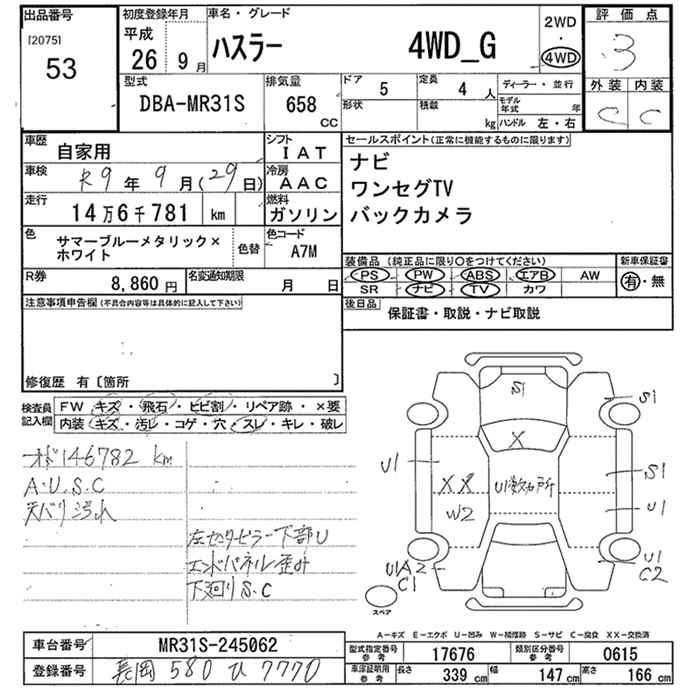 出品番号
[2075]
53
初度登録年月
平成
26 9月
車名・グレード
ハスラー 4WD_G
2WD
・
4WD
評価点
3
外装 内装
C C
型式
DBA-MR31S
排気量
658
CC
ドア 5
定員 4 人
形状
積載 kg
ディーラー・並行
モデル年式 年
ハンドル 左・右
車歴 自家用
シフト IAT
車検 R9年 9月(29日)
冷房 AAC
走行 14万6千781 km
燃料 ガソリン
色 サマーブルーメタリック×
ホワイト
色替
色コード A7M
R券 8,860円
名変通知期限 月 日
セールスポイント(正常に機能するものに限ります)
ナビ
ワンセグTV
バックカメラ
装備品 (純正品に限り〇をつけてください)
PS PW ABS エアB AW
SR ナビ TV カワ
新車保証書
有・無
後日品 保証書・取説・ナビ取説
注意事項申告欄(不具合内容等は具体的に記入して下さい)
修復歴 有〔箇所 〕
検査員
記入欄
FW キズ・飛石・ヒビ割・リペア跡・×要
内装 キズ・汚レ・コゲ・穴・スレ・キレ・破レ
オド146782 km
A.U.S.C
天バリ汚れ
左センターピラー下部U
エンドパネル歪み
下廻りS.C
S1
S1
X
U1
XX
W2
U1数ヵ所
S1
U1
U1A2
C1
U1
C2
スペア
A-キズ E-エクボ U-凹み W-補修跡 S-サビ C-腐食 XX-交換済
車台番号 MR31S-245062
登録番号 長岡 580 ひ 7770
型式指定番号
参考
17676
類別区分番号
参考
0615
車庫証明用
参考
長さ 339 cm
幅 147 cm
高さ 166 cm